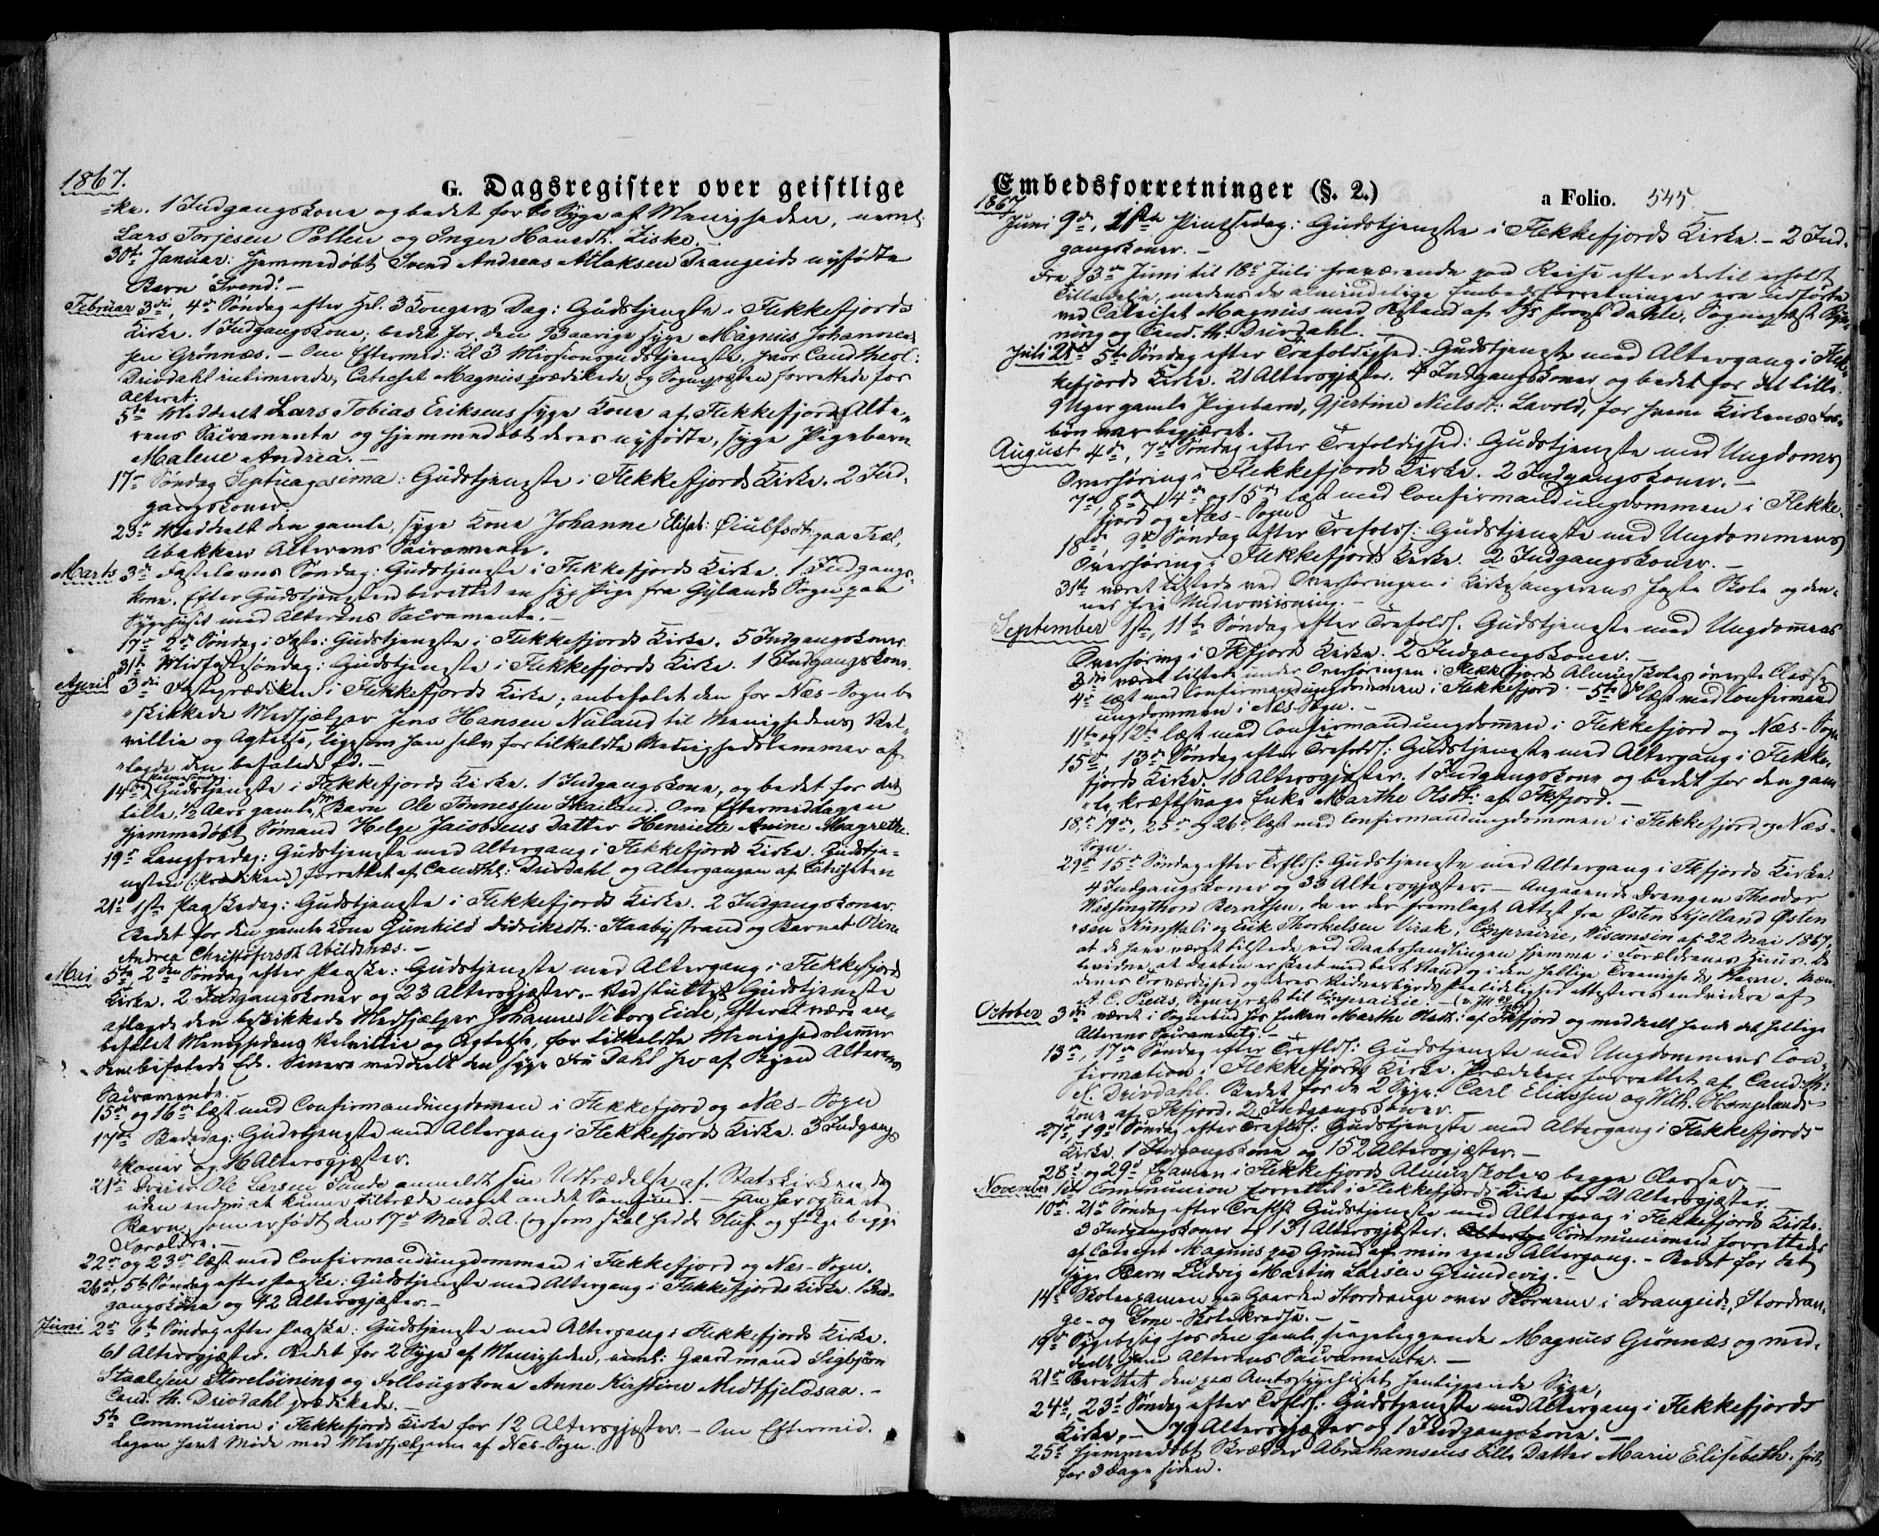 1867.
G. Dagsregister over geistlige
ke. 1 Indgangskone og bedet for to Syge af Menigheden, neml.
Lars Torjesen Pollen og Inger Hansdt. Liske.
30te Januar: Hjemmedøbt Svend Andreas Atlaksen Drangeids nyfødte
Barn "Svend". –
Februar 3die, 4de Søndag efter Hel. 3 Kongers Dag: Gudstjeneste i Flekkefjords
Kirke. 1 Indgangskone; bedet for den Baarige syge Magnus Johanne-
sen Grønnæs. – Om Eftermid: Kl 3 Missionsgudstjeneste, hvor Cand theol:
Drivdahl intimerede, Catechet Magnus prædikede og Sognepræsten forrettede for
Alteret.
5te Meddeelt Lars Tobias Eriksens syge Kone af Flekkefjord Alte-
rens Sacramente og hjemmedøbt deres nyfødte, syge Pigebarn
Malene Andrea. –
17de Søndag Septuagesima: Gudstjeneste i Flekkefjords Kirke. 2 Ind-
gangskoner.
23de Meddeelt den gamle, syge Kone Johanne Elisab: paa Træl-
lebakken Alterens Sacramente.
Marts 3die Fastelavns Søndag: Gudstjeneste i Flekkefjords Kirke. 1 Indgangs-
kone. Efter Gudstjenesten berettet en syg Pige fra Gylands Sogn paa
Sygehuset med Alterens Sacramente. –
17de 2den Søndag i Faste: Gudstjeneste i Flekkefjords Kirke. 5 Indgangskoner.
31te Midfastesøndag: Gudstjeneste i Flekkefjords Kirke. 1 Indgangskone.
April 3die Fasteprædiken i Flekkefjords Kirke; anbefalet den for Næs-Sogn be-
skikkede Medhjælper Jens Hansen Nuland til Menighedens Vel-
villie og Agtelse, ligesom han selv for tilkaldte Menighedslemmer af-
lagde den befalede Ed. –
Palmesøndag
14de Gudstjeneste i Flekkefjords Kirke. 1 Indgangskone, og bedet for det
lille, 1½ Aars gamle Barn Ole Tønnessen Skailand. Om Eftermiddagen
hjemmedøbt Sømand Helge Jacobsens Datter Henriette Anine Magrethe.
19de Langfredag: Gudstjeneste med Altergang i Flekkefjords Kirke. Gudstje-
nesten (: Prædiken) forrettet af Cand th: Drivdahl og Altergangen af Catecheten
21de 1ste Paaskedag: Gudstjeneste i Flekkefjords Kirke. 2 Indgangskoner.
Bedet for den gamle Kone Gunhild Didriksdt: Haabystrand og Barnet Oline
Andrea Christofersdt Abildsnæs. –
Mai 5te 2den Søndag efter Paaske: Gudstjeneste med Altergang i Flekkefjords
Kirke. 2 Indgangskoner og 23 Altersgjæster. – Ved sluttet Gudstjeneste
aflagde den beskikkede Medhjælper Johannes Viborg Eide, efterat være an-
befalet Menighedens Velvillie og Agtelse, for tilkaldte Menighedslemmer
den befalede Ed. Senere meddeelt den syge Fru Dahl her af Byen Alterens
Sacramente.
15de og 16de læst med Confirmandungdommen i Flekkefjord og Næs-Sogn
17de Bededag: Gudstjeneste med Altergang i Flekkefjords Kirke. 3 Indgangs-
koner og 16 Altersgjæster.
21de Ole Larsen Sunde anmeldt sin Udtrædelse af Statskirken
uden endnu at kunne tiltræde noget andet Samfund. – Han har ogsaa et
Barn, som er født den 17de Mai d.A. (og som skal hedde Oluf og følge begge
Forældre. –
22de og 23de læst med Confirmandungdommen i Flekkefjord og Næs-Sogn.
26de, 5te Søndag efter Paaske: Gudstjeneste med Altergang i Flekkefjords Kirke. 1 Ind-
gangskone og 42 Altersgjæster. –
Juni 2den 6te Søndag efter Paaske: Gudstjeneste med Altergang i Flekkefjords Kirke.
61 Altersgjæster. Bedet for 2 Syge af Menigheden, neml: Gaardmand Sigbjørn
Staalesen Storeløining og Follougskone Anne Kirstine Midtfjeldsaa. –
Cand. th. Drivdahl prædikede. –
5te Communion i Flekkefjords Kirke for 12 Altersgjæster. – Om Eftermid-
dagen havt Møde med Medhjælperne af Næs-Sogn.
Embedsforretninger (§. 2.)
a Folio. 545.
1867
Juni 9de, 1ste Pintsedag: Gudstjeneste i Flekkefjords Kirke. – 2 Ind-
gangskoner. –
Fra 13de Juni til 18de Juli fraværende paa Reise efter dertil erholdt
Tilladelse, medens de almindelige Embedsforretninger ere udførte
ved Catechet Magnus med Bistand af Provst Dahle, Sognepræst
ning og Cand. th. Drivdahl. –
Juli 21de 5te Søndag efter Trefoldighed: Gudstjeneste med Altergang i Flek-
kefjords Kirke. 21 Altersgjæster. 4 Indgangskoner og bedet for det lille
9 Uger gamle Pigebarn, Gjertine Nielsdt: Lavold, for hvem Kirkens For-
bøn var begjæret.
August 4de, 7de Søndag efter Trefoldighed: Gudstjeneste med Ungdoms
Overhøring i Flekkefjords Kirke. 2 Indgangskoner. –
7de, 8de, 14de og 15de læst med Confirmandungdommen i Flekke-
fjord og Næs-Sogn
18de 9de Søndag efter Trefolds: Gudstjeneste med Ungdommens
Overhøring i Flekkefjords Kirke. 2 Indgangskoner. –
31te været tilstede ved Overhøringen i Kirkesangerens faste Skole og den-
nes frie Underviisning. –
September 1ste, 11te Søndag efter Trefolds. Gudstjeneste med Ungdommens
Overhøring i Fkfjord Kirke. 2 Indgangskoner. –
3die været tilstede under Overhøringen i Flekkefjords Almueskoles øverste Classe
4de læst med Confirmandungdommen i Flekkefjord. – 5te Do læst med Confirmand
ungdommen i Næs-Sogn. –
11te og 12te læst med Confirmandungdommen i Flekkefjord og Næs-Sogn
15de, 13de Søndag efter Trefolds: Gudstjeneste med Altergang i Flekke-
fjords Kirke. 18 Altersgjæster. 1 Indgangskone og bedet for den gam-
le kræftsvage Enke Marthe Olsdt: af Fkfjord. –
18de, 19de, 25de og 26de læst med Confirmandungdommen i Flekkefjord og Næs-
Sogn.
29de 15de Søndag efter Trefolds: Gudstjeneste med Altergang i Fkfjords Kirke.
4 Indgangskoner og 33 Altersgjæster. – Angaaende Drengen Theodor
Wassingthon Berntsen, da er der fremlagt Attest fra Østen Kjelland Østen
sen Kunstali og Erik Thorkelsen Virak, Coonprairie, Wisconsin af 22 Mai 1867,
at de have været tilstede ved Daabshandlingen hjemme i Forældrenes Huus. De
bevidne, at Daaben er skeet med bart Vand og i den hellige Treenigheds Navn. Mæn-
denes Troværdighed og deres Vidnesbyrds Paalidelighed attesteres endvidere af
A. C. Preus, Sognepræst til Coonprairie. –
October 3die været i Sognebud hos Enken Marthe Olsdt: af Fkfjord og meddeelt hende det hellige
Alterens Sacramente. –
13de, 17de Søndag efter Trefolds: Gudstjeneste med Ungdommens Con-
firmation i Flekkefjords Kirke. Prædiken forrettet af Cand. th:
N. Drivdahl. Bedet for de 2 Syge: Carl Eliassen og Wilh. Hamplands
Kone af Fkfjord. 2 Indgangskoner.
27de, 19de Søndag efter Trefolds: Gudstjeneste med Altergang i Flekkefjords
Kirke. 1 Indgangskone og 152 Altersgjæster. –
28de og 29de Examen i Flekkefjords Almueskoles begge Classer. –
November 1ste Communion forrettet i Flekkefjords Kirke for 21 Altersgjæster.
10de 21de Søndag efter Trefolds Gudstjeneste med Altergang i Flekkefjords Kirke.
3 Indgangskoner og 131 Altersgjæster. Communionen forrettedes
af Catechet Magnus paa Grund af min egen Altergang. – Bedet for det
syge Barn Ludvig Martin Larsen Grundevig. –
14de Skoleexamen paa Gaarden Stordrange over Børnene i Drangeid-, Stordran-
ge- og Lone-Skolekredse. –
19de Sygebesøg hos den gamle, sengeliggende Magnus Grønnæs og med-
deelt ham Alterens Sacramente. –
21de Berettet den paa Amtssygehuset henliggende Syge,
24de, 23de Søndag efter Trefolds: Gudstjeneste med Altergang i Flekkefjords
Kirke, – 79 Altersgjæster og 1 Indgangskone. –
25de hjemmedøbt Skrædder Abrahamsens lille Datter Marie Elisebeth, født
for 3 Dage siden.